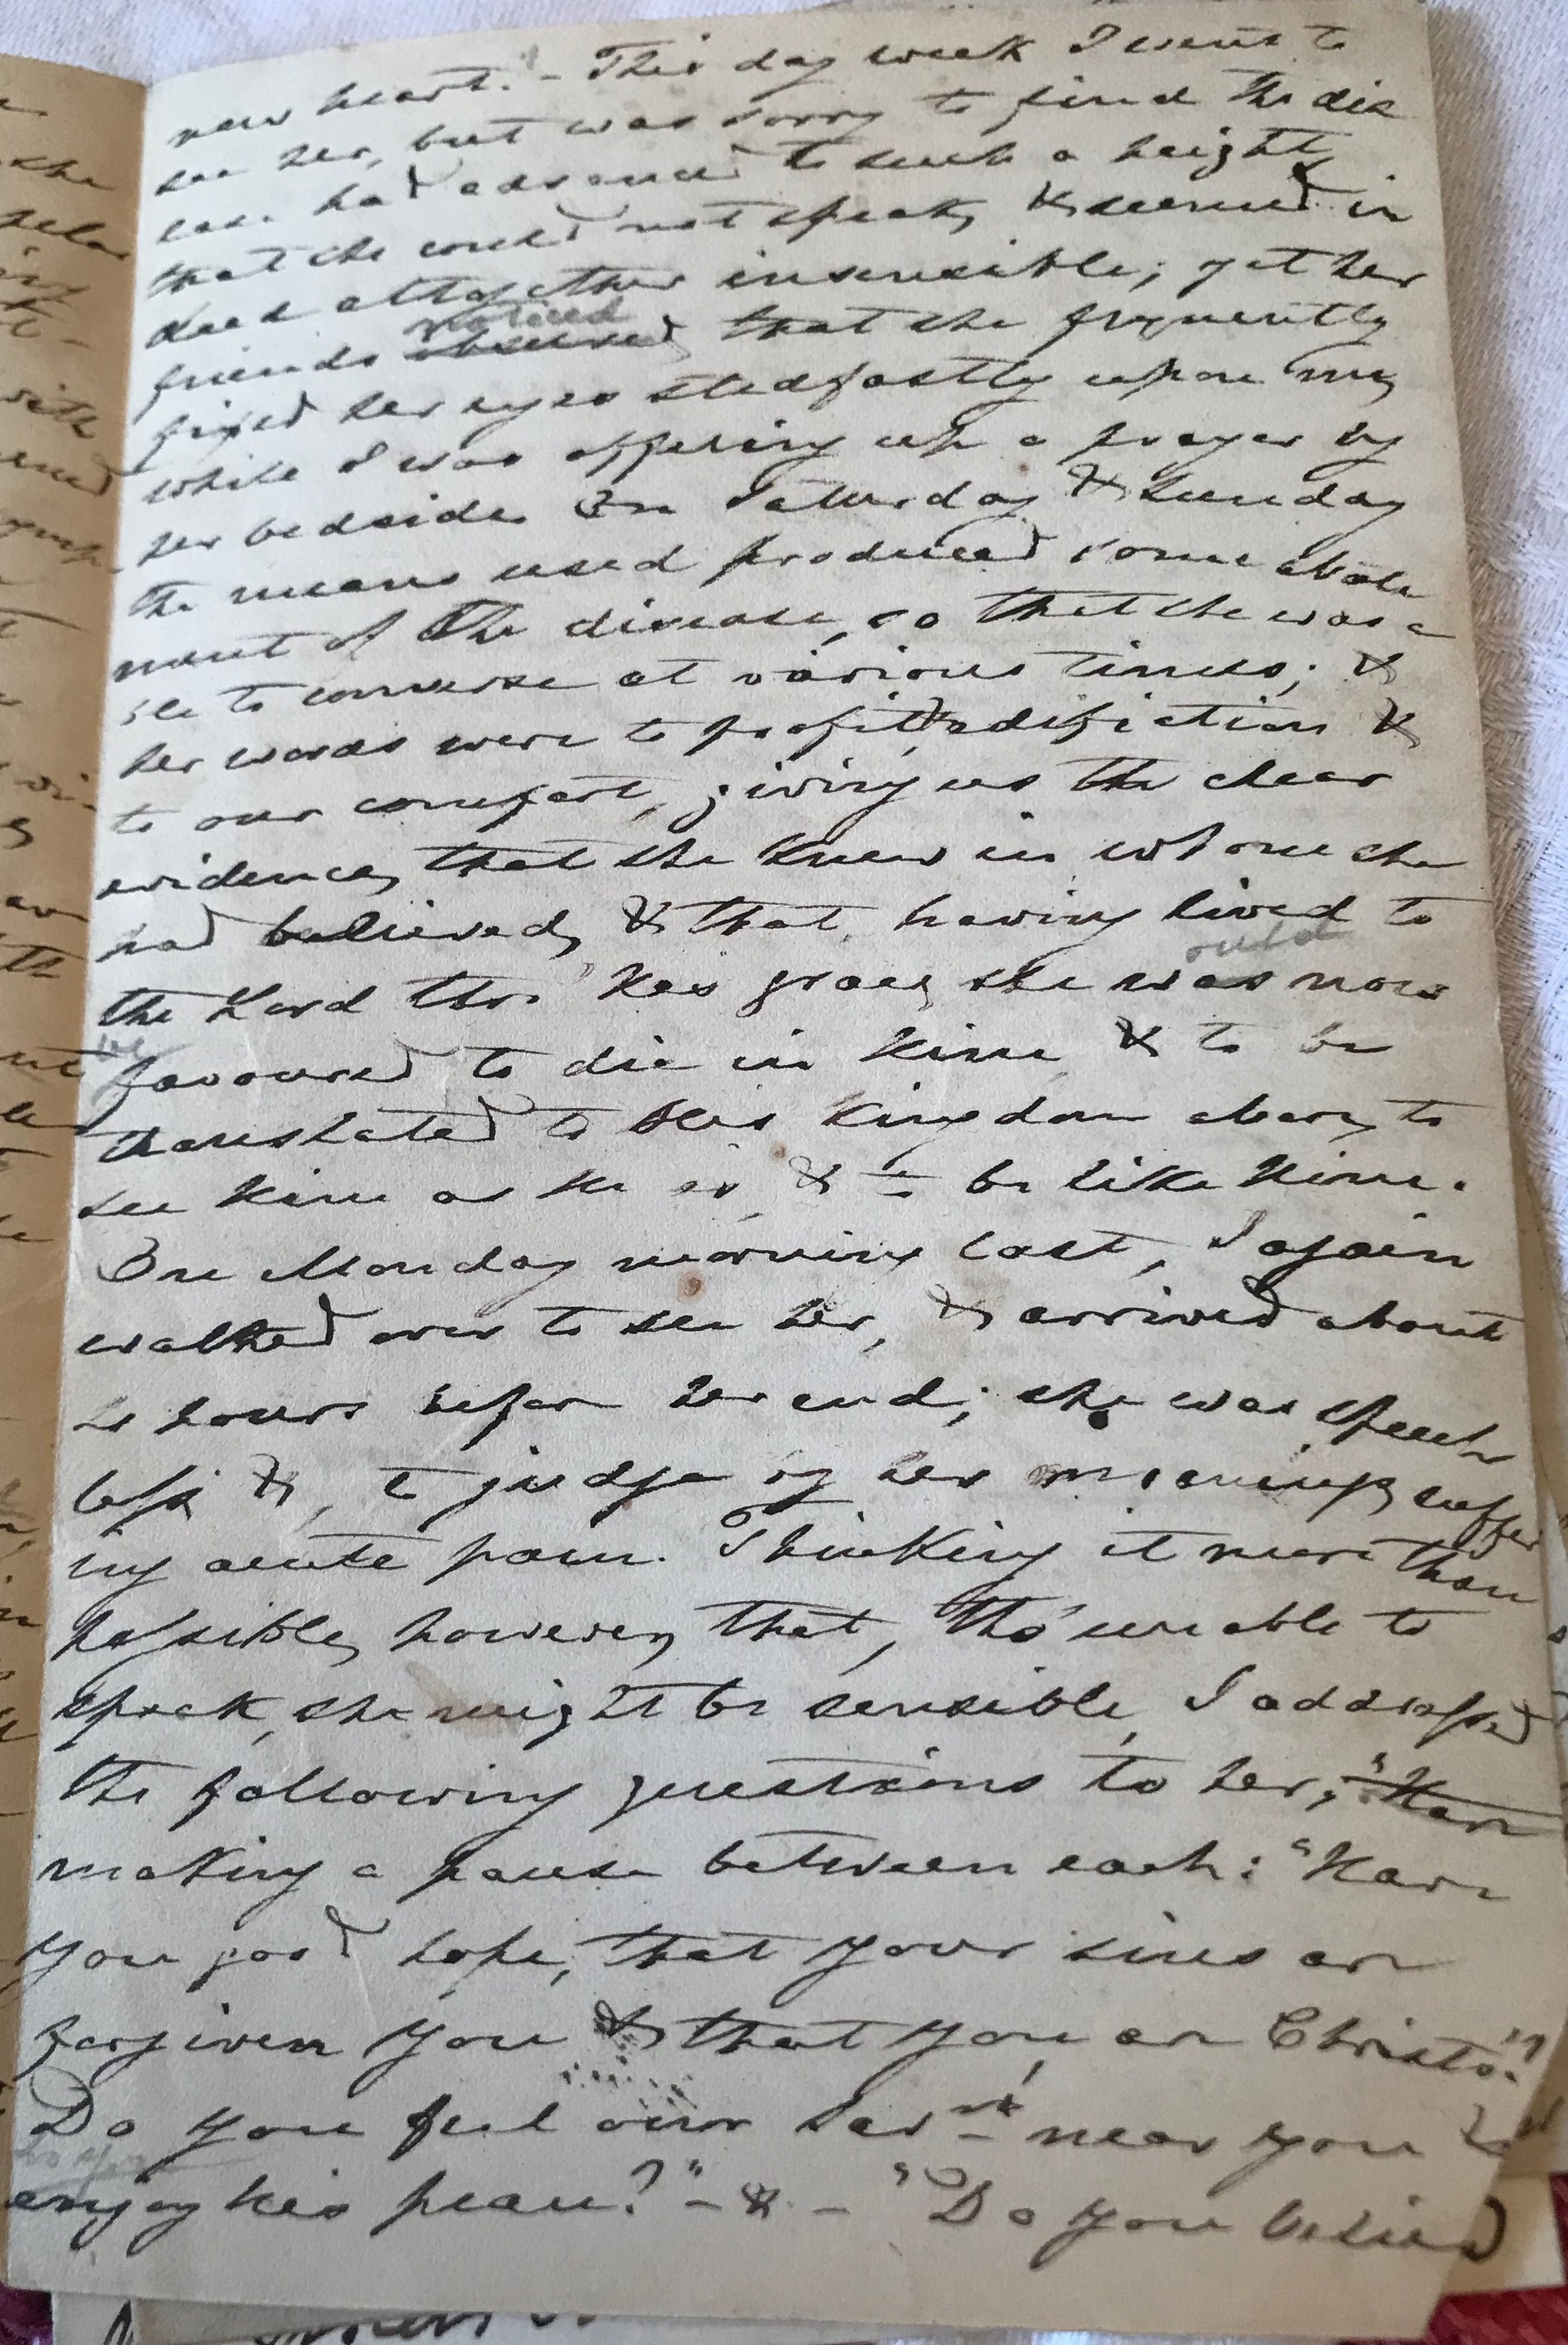 new heart. - This day week I went to
see her, but was sorry to find the dis
ease had advanced to such a height,
that she could not speak, & seemed in
deed altogether insensible; yet her
noticed
friends observed, that she frequently
fixed her eyes stedfastly upon me,
while I was offering up a prayer by
her bedside. On Saturday & Sunday
the means used produced some abate
ment of the disease, so that she was a
ble to converse at various times; &
her words were to profit & edification &
to our comfort, giving us the clear
evidence, that she knew in whom she
had believed, & that, having lived to
the Lord thro' His grace, she was now
favoured to die in Him, & to be
translated to His Kingdom above, to
see Him as He is, & to be like Him.
On Monday morning last, I again
walked over to see her, & arrived about
hours before her end; she was speech
less &, to judge by her moanings, suffer
ing acute pain. Thinking it more than
possible, however, that, tho' unable to
speak, she might be sensible, I addressed
the following questions to her, "Have
making a pause between each: "Have
you good hope, that your sins are
forgiven you & that you are Christ's?"
Do you feel our Savr near you &
enjoy his peace?" - & - "Do you